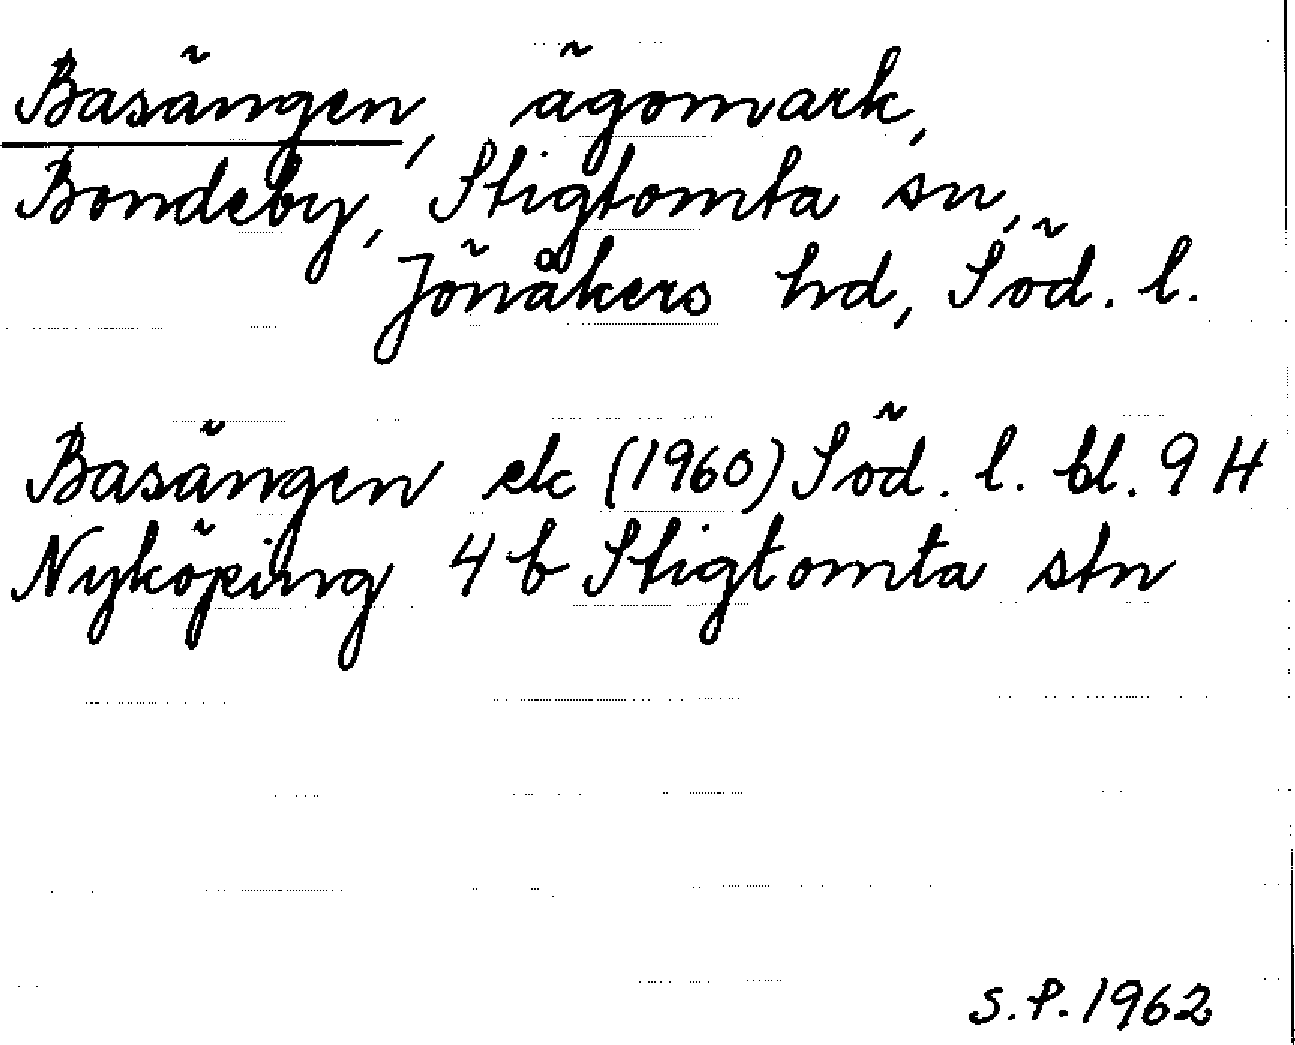 Basängen, ägomark,
Bondeby, Stigtomta sn,
Jönåkers hd, Söd. l.
Basängen ek (1960) Söd. l. bl. 9 H
Nyköping 4 b Stigtomta stn
S.P. 1962